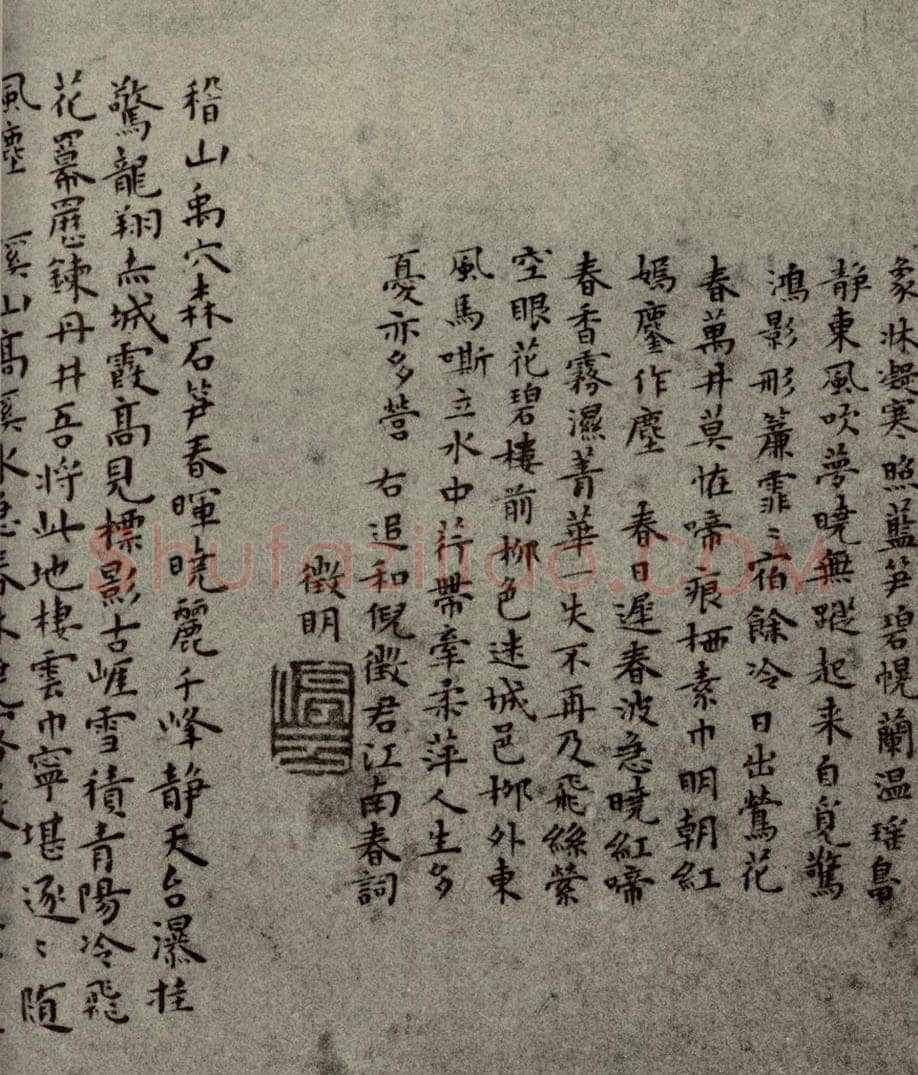 象牀凝寒照藍笋碧幌蘭温瑤鳧
静東風吹夢曉無蹤起来自覓驚
鴻影彤簾霏〻宿餘冷日出鶯花
春萬井莫恠啼痕栖素巾明朝紅
嫣鏖作塵 春日遲春波急曉紅啼
春香霧濕菁華一失不再及飛絲縈
空眼花碧樓前柳色迷城邑柳外東
風馬嘶立水中荇帶牽柔萍人生多
憂亦多營 右追和倪徵君江南春詞
徵明
稽山禹穴森石笋春暉曉麗千峰静天台瀑挂
驚龍翔赤城霞髙見標影古崕雪積青陽冷飛
花羃䍥鍊丹井吾将此地棲雲巾寧堪逐〻随
風塵 溪山髙溪水急春
Shufaziliao.COM